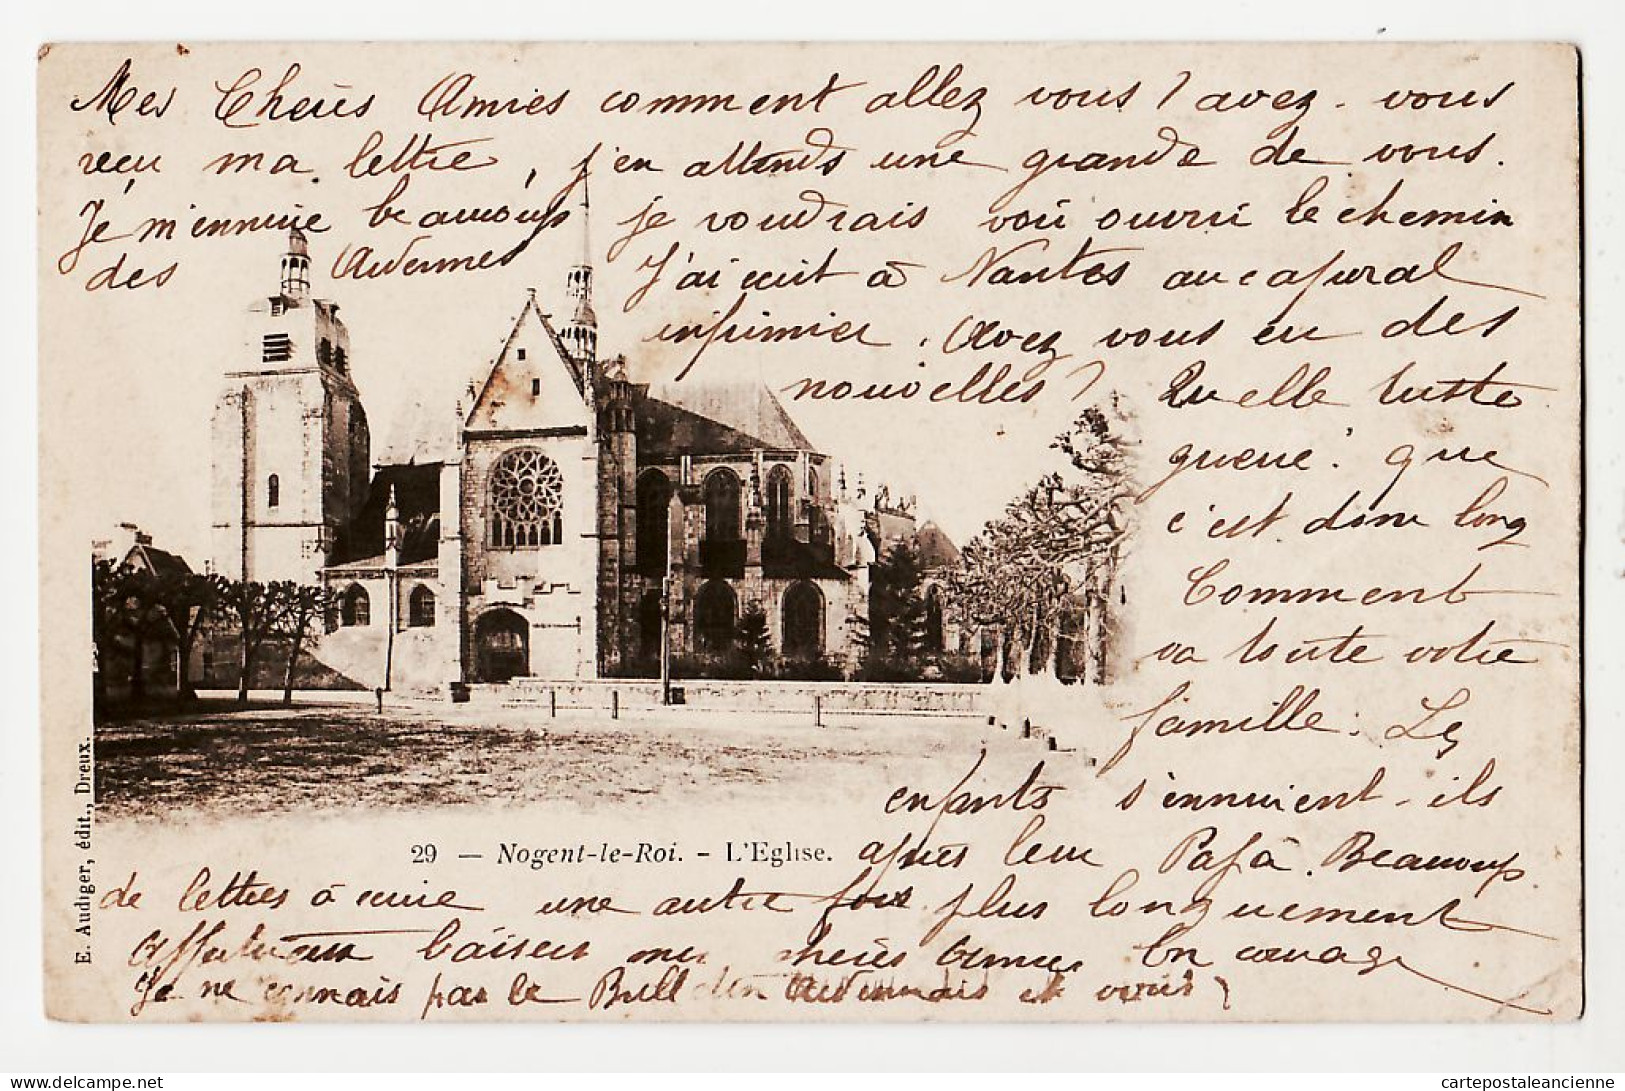 Mes Chères Amies comment allez vous? avez-vous
reçu ma lettre, j'en attends une grande de vous.
Je m'ennuie beaucoup je voudrais voir ouvrir le chemin
des Ardennes J'ai écrit à Nantes au caporal
infirmier. Avez vous eu des
nouvelles? Quelle triste
guerre. que
c'est donc long
Comment
va toute votre
famille. Les
enfants s'ennuient - ils
29 — Nogent-le-Roi. - L'Eglise. après leur Papa. Beaucoup
de lettres à écrire une autre fois plus longuement
Affectueux baisers mes chères amies Bon courage
Je ne connais pas le Bull des Ardennais et vous?
E. Audiger, édit., Dreux.
delcampe.net
cartepostaleancienne